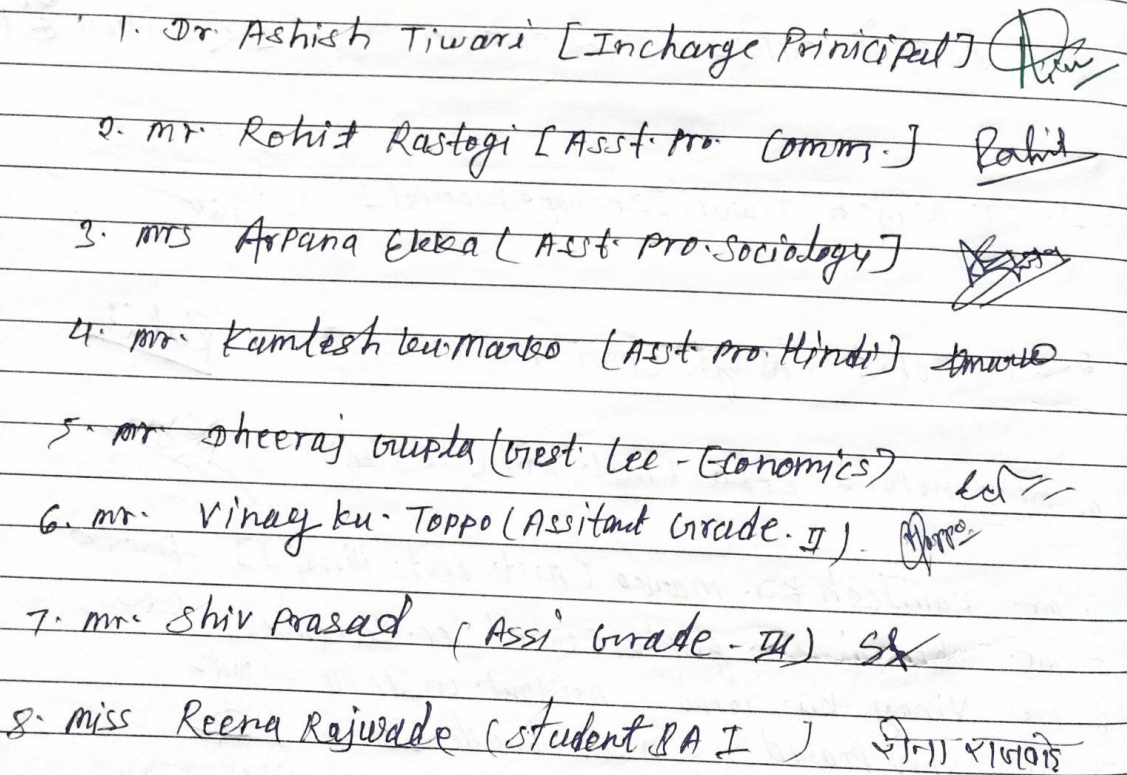 1. Dr. Ashish Tiwari [Incharge Prinicipal]
2. mr. Rohit Rastogi [Asst. Pro. Comm.] Rohit
3. mrs Arpana Ekka (Asst. pro. Sociology]
4. mr. Kamlesh ku. Marko (Asst pro. Hindi]
5. mr Dheeraj Gupta (Gest. Lec - Economics)
6. mr. Vinay ku. Toppo (Assitant Grade. II). Toppo
7. mr. Shiv Prasad (Assi Grade - III)
8. miss Reena Rajwade (student BA I ] रीना राजवाड़े